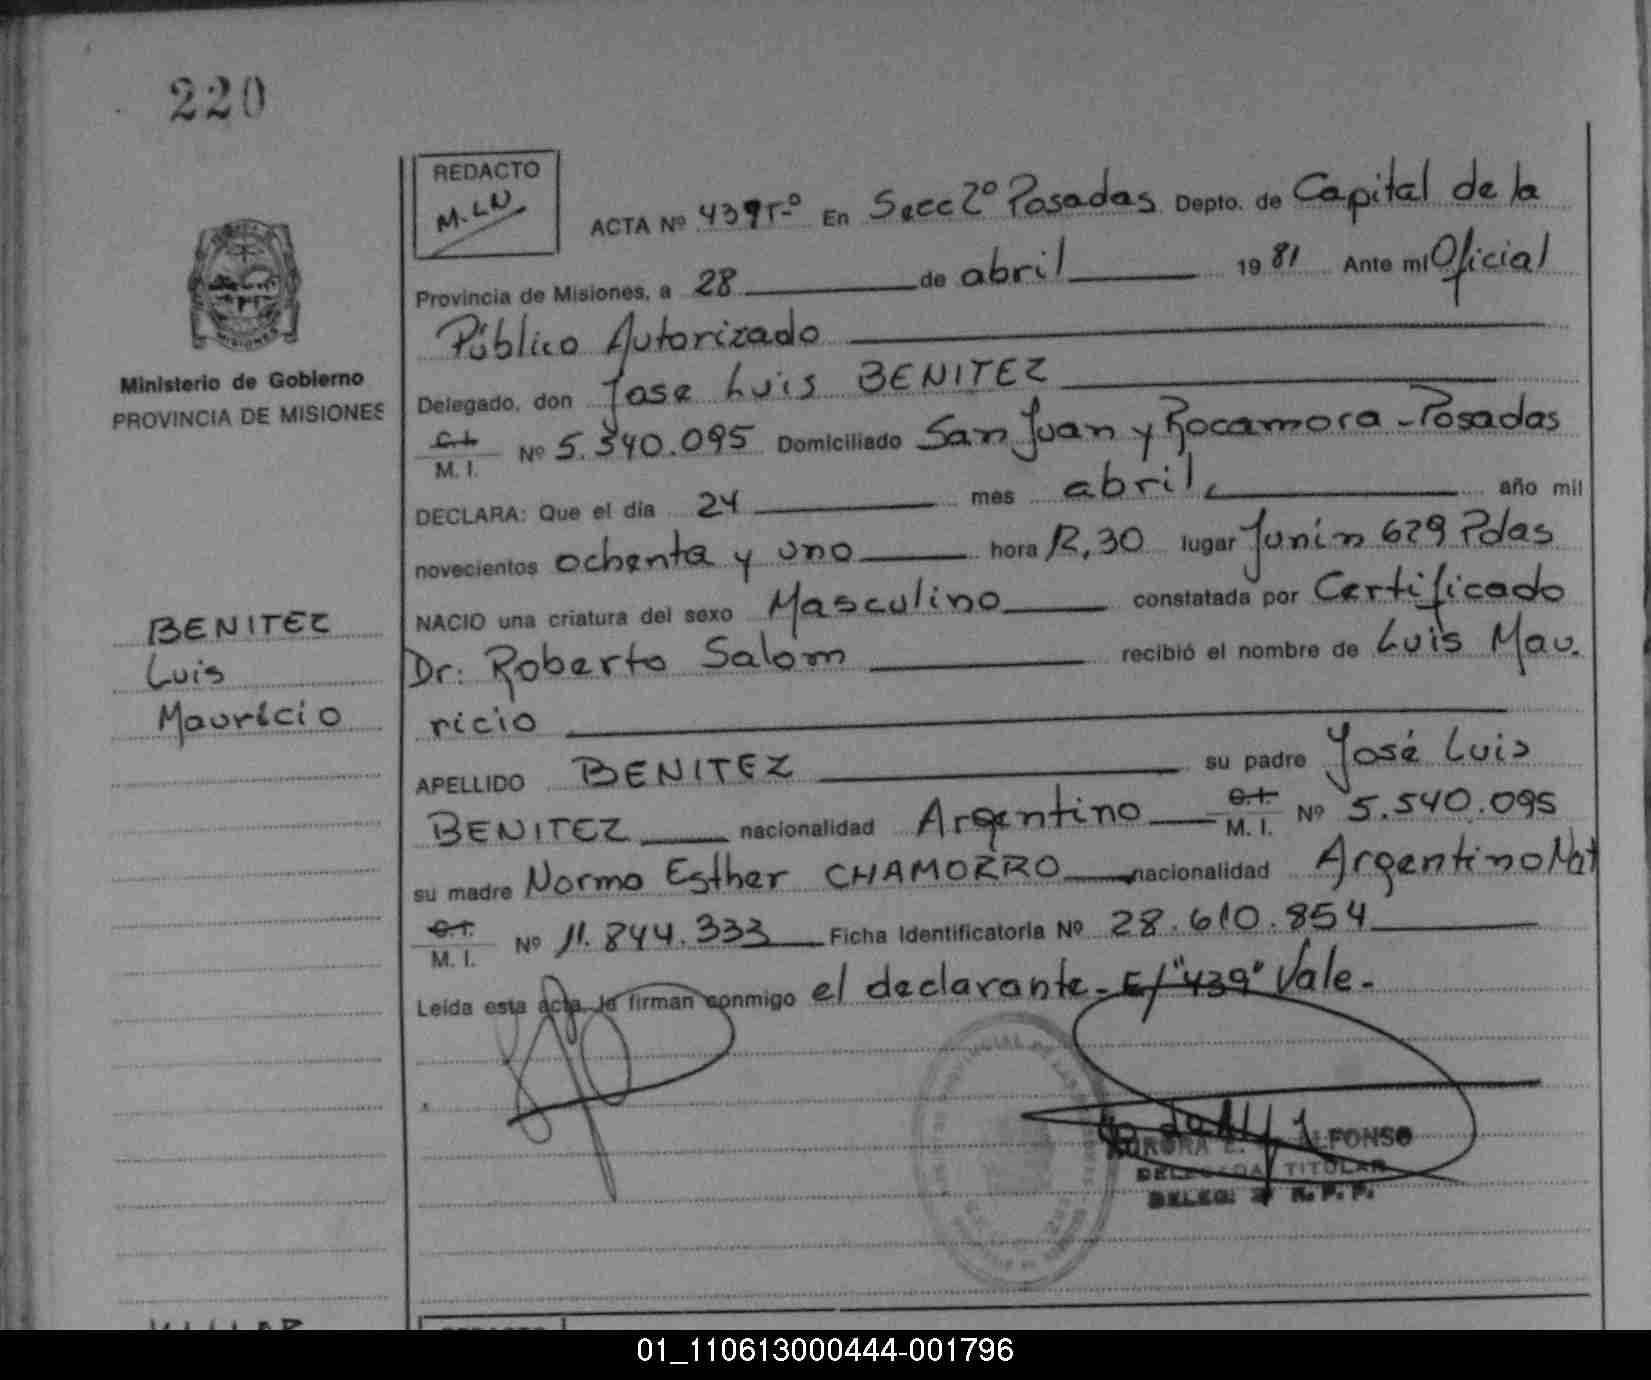 220
REDACTO
M.LN
ACTA Nº 439 Tº En Secc 2º Posadas Depto. de Capital de la
Provincia de Misiones, a 28 de abril 1981 Ante mi Oficial
Público Autorizado
Delegado, don Jose Luis BENITEZ
C.I. M. I. Nº 5.540.095 Domiciliado San Juan y Rocamora - Posadas
DECLARA: Que el día 24 mes abril año mil
novecientos ochenta y uno hora 12,30 lugar Junín 629 Pdas
NACIO una criatura del sexo Masculino constatada por Certificado
Dr. Roberto Salom recibió el nombre de Luis Mau.
ricio
APELLIDO BENITEZ su padre José Luis
BENITEZ nacionalidad Argentino C.I. M. I. Nº 5.540.095
su madre Norma Esther CHAMORRO nacionalidad Argentino Nat
C.I. M. I. Nº 11.844.333 Ficha Identificatoria Nº 28.610.854
Leída esta acta, la firman conmigo el declarante. E/"439" Vale.-
Ministerio de Gobierno
PROVINCIA DE MISIONES
BENITEZ
Luis
Mauricio
AURORA E. ALFONSO
DELEGADA TITULAR
DELEG. 2ª R. P. P.
01_110613000444-001796